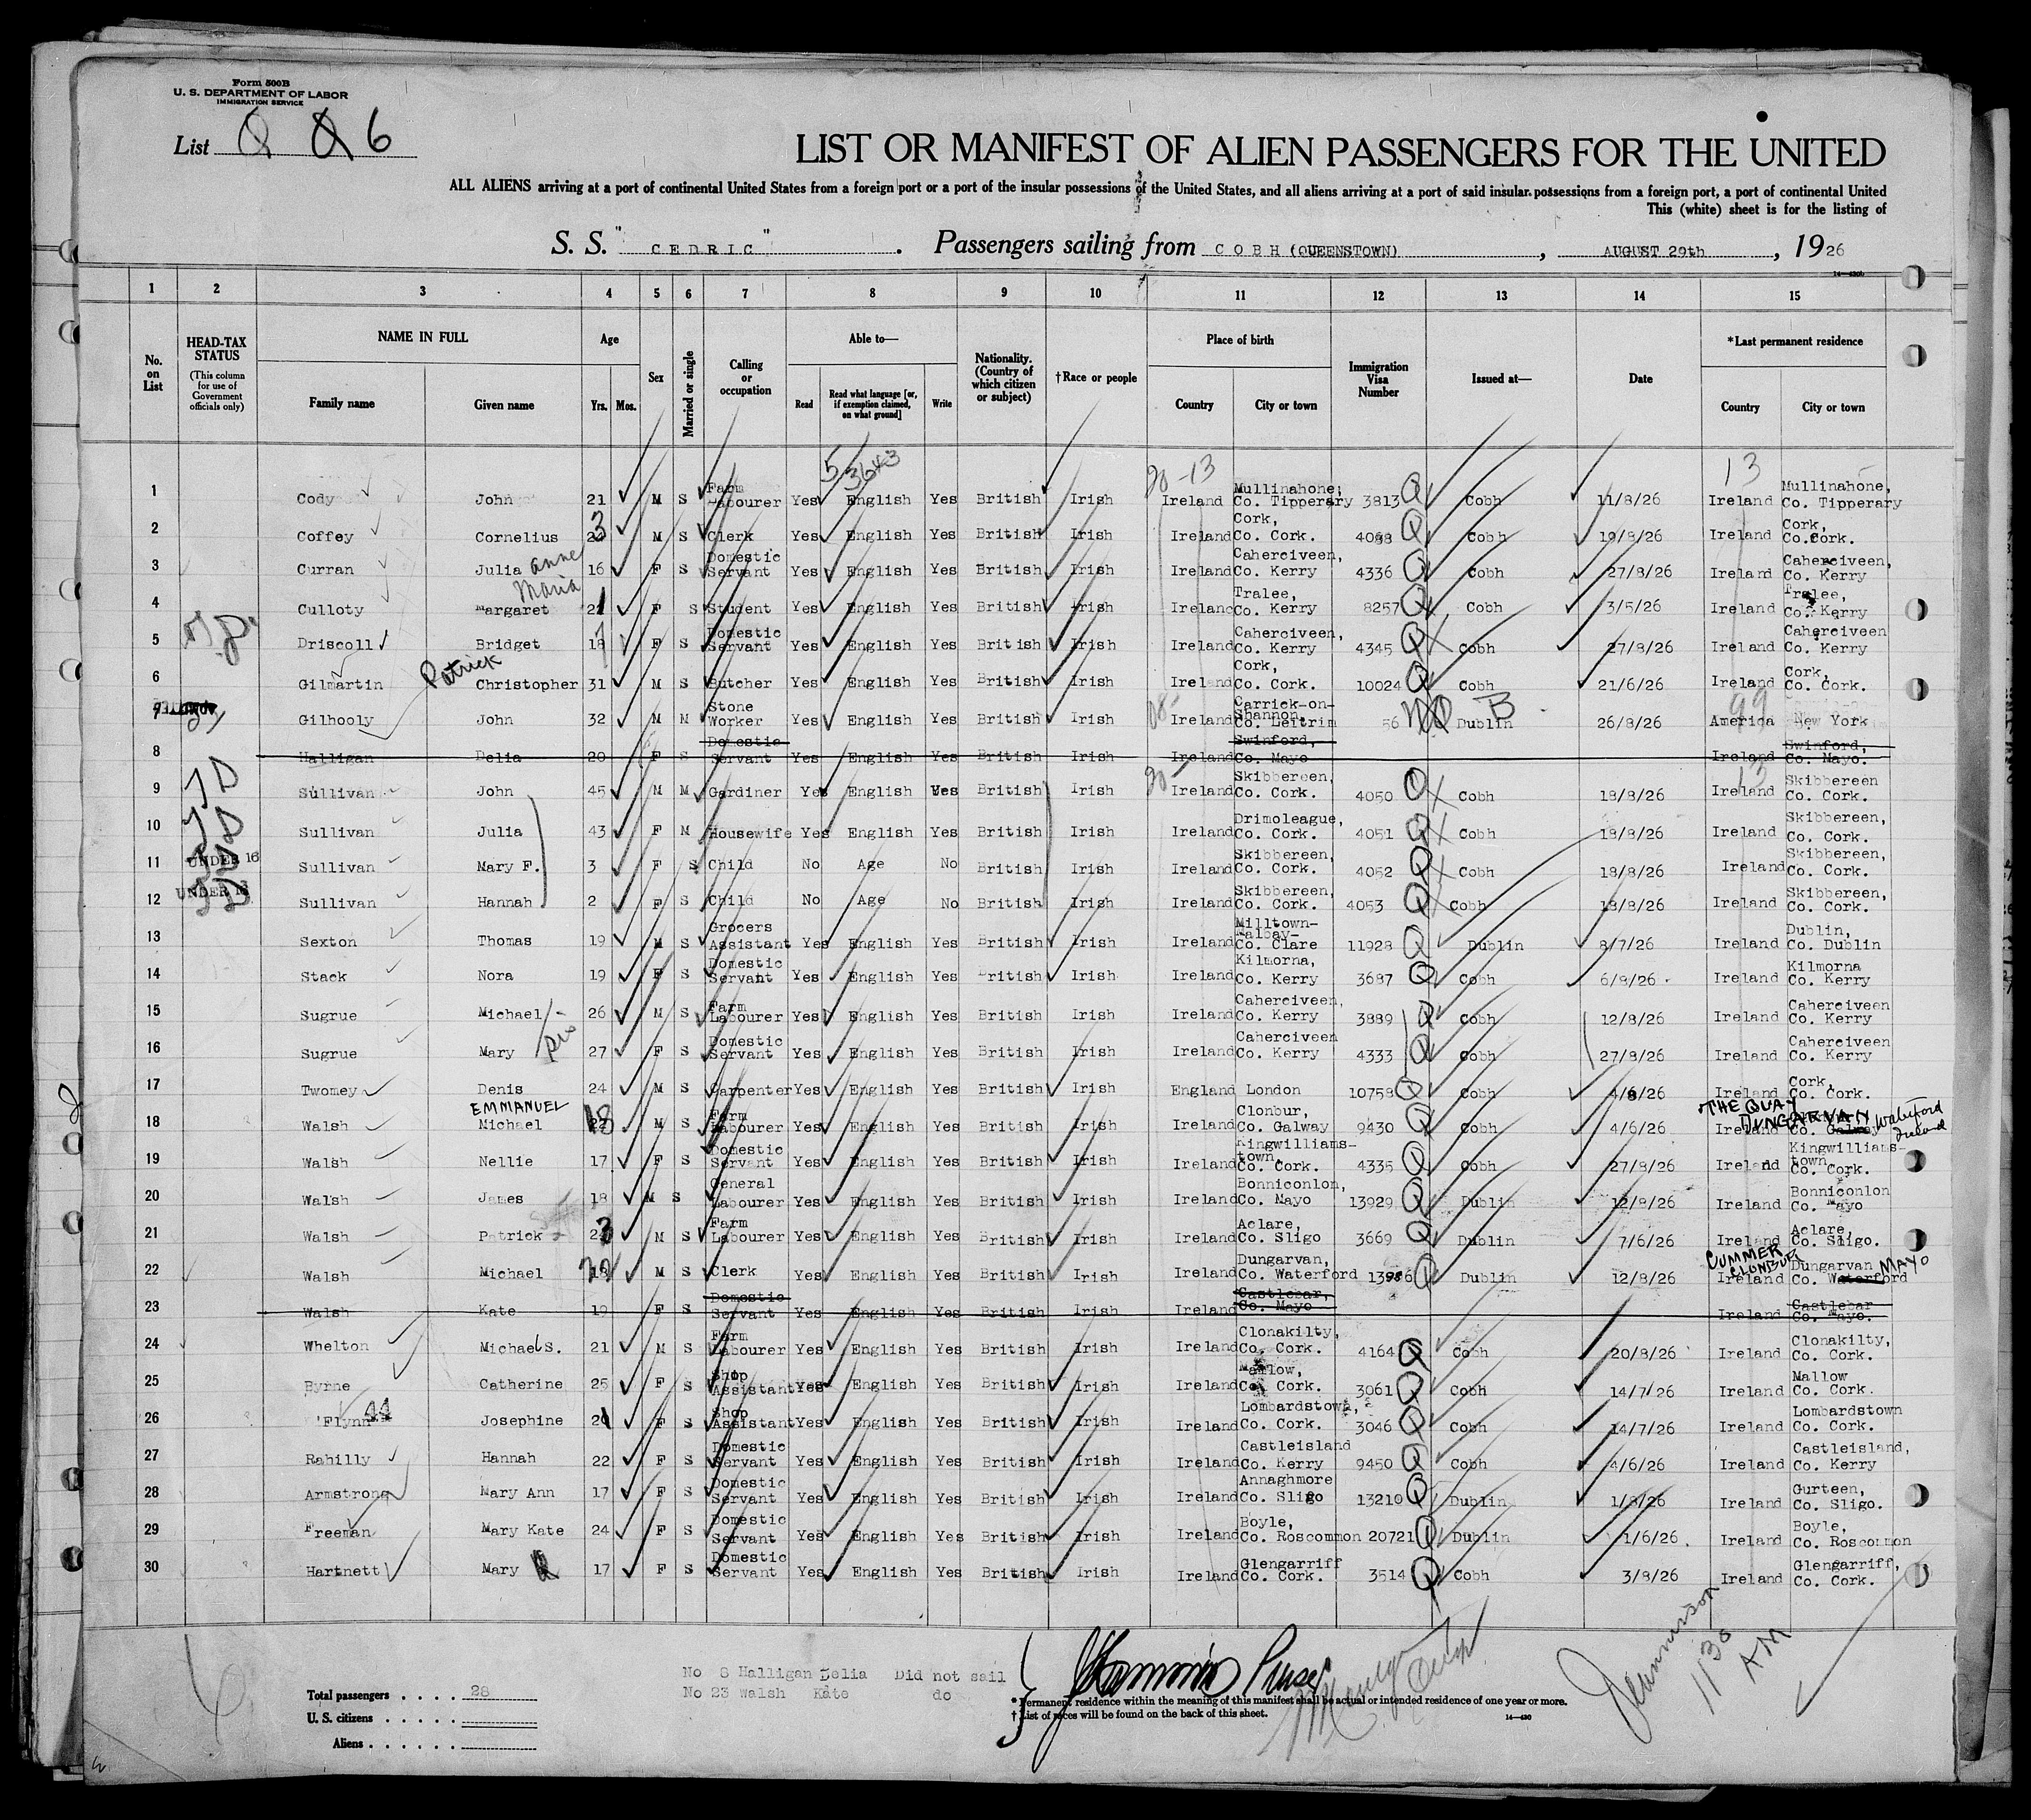 Form 500B
U. S. DEPARTMENT OF LABOR
IMMIGRATION SERVICE
List Q Q 6
LIST OR MANIFEST OF ALIEN PASSENGERS FOR THE UNITED
ALL ALIENS arriving at a port of continental United States from a foreign port or a port of the insular possessions of the United States, and all aliens arriving at a port of said insular possessions from a foreign port, a port of continental United
This (white) sheet is for the listing of
S. S. "CEDRIC". Passengers sailing from COBH (QUEENSTOWN), AUGUST 29th, 1926
14—430b
1 2 3 4 5 6 7 8 9 10 11 12 13 14 15
No. on List
HEAD-TAX STATUS (This column for use of Government officials only)
NAME IN FULL Family name Given name
Age Yrs. Mos.
Sex
Married or single
Calling or occupation
Able to— Read Read what language [or, if exemption claimed, on what ground] Write
Nationality. (Country of which citizen or subject)
†Race or people
Place of birth Country City or town
Immigration Visa Number
Issued at—
Date
*Last permanent residence Country City or town
5 3643 20-13 13
1 Cody John 21 M S Farm Labourer Yes English Yes British Irish Ireland Mullinahone, Co. Tipperary 3813 Q Cobh 11/8/26 Ireland Mullinahone, Co. Tipperary
2 Coffey Cornelius 23 M S Clerk Yes English Yes British Irish Ireland Cork, Co. Cork. 4088 Q Cobh 19/8/26 Ireland Cork, Co. Cork.
3 Curran Julia anne 16 F S Domestic Servant Yes English Yes British Irish Ireland Caherciveen, Co. Kerry 4336 Q Cobh 27/8/26 Ireland Caherciveen, Co. Kerry
4 Culloty Margaret Maria 21 F S Student Yes English Yes British Irish Ireland Tralee, Co. Kerry 8257 Q Cobh 3/5/26 Ireland Tralee, Co. Kerry
5 Driscoll Bridget 18 F S Domestic Servant Yes English Yes British Irish Ireland Caherciveen, Co. Kerry 4345 Q Cobh 27/8/26 Ireland Caherciveen Co. Kerry
6 Gilmartin Patrick Christopher 31 M S Butcher Yes English Yes British Irish Ireland Cork, Co. Cork. 10024 Q Cobh 21/6/26 Ireland Cork, Co. Cork.
7 ADMITTED Gilhooly John 32 M M Stone Worker Yes English Yes British Irish Ireland Carrick-on-Shannon, Co. Leitrim 56 NQ B Dublin 26/8/26 America 99 New York
8 Halligan Delia 20 F S Domestic Servant Yes English Yes British Irish Ireland Swinford, Co. Mayo Ireland Swinford, Co. Mayo.
9 Sullivan John 45 M M Gardiner Yes English Yes British Irish Ireland Skibbereen, Co. Cork. 4050 Q Cobh 18/8/26 Ireland Skibbereen Co. Cork.
10 Sullivan Julia 43 F M Housewife Yes English Yes British Irish Ireland Drimoleague, Co. Cork. 4051 Q Cobh 18/8/26 Ireland Skibbereen, Co. Cork.
11 UNDER 16 Sullivan Mary F. 3 F S Child No Age No British Irish Ireland Skibbereen, Co. Cork. 4052 Q Cobh 18/8/26 Ireland Skibbereen, Co. Cork.
12 UNDER 16 Sullivan Hannah 2 F S Child No Age No British Irish Ireland Skibbereen, Co. Cork. 4053 Q Cobh 18/8/26 Ireland Skibbereen, Co. Cork.
13 Sexton Thomas 19 M S Grocers Assistant Yes English Yes British Irish Ireland Milltown-Malbay- Co. Clare 11928 Q Dublin 8/7/26 Ireland Dublin, Co. Dublin
14 Stack Nora 19 F S Domestic Servant Yes English Yes British Irish Ireland Kilmorna, Co. Kerry 3687 Q Cobh 6/8/26 Ireland Kilmorna Co. Kerry
15 Sugrue Michael 26 M S Farm Labourer Yes English Yes British Irish Ireland Caherciveen, Co. Kerry 3889 Q Cobh 12/8/26 Ireland Caherciveen Co. Kerry
16 Sugrue Mary 27 F S Domestic Servant Yes English Yes British Irish Ireland Caherciveen Co. Kerry 4333 Q Cobh 27/8/26 Ireland Caherciveen Co. Kerry
17 Twomey Denis 24 M S Carpenter Yes English Yes British Irish England London 10758 Q Cobh 4/8/26 Ireland Cork, Co. Cork.
18 Walsh EMMANUEL Michael 18 M S Farm Labourer Yes English Yes British Irish Ireland Clonbur, Co. Galway 9430 Q Cobh 4/6/26 Ireland THE QUAY DUNGARVAN Co. Galway Waterford Ireland
19 Walsh Nellie 17 F S Domestic Servant Yes English Yes British Irish Ireland Kingwilliams-town, Co. Cork. 4335 Q Cobh 27/8/26 Ireland Kingwilliams-town, Co. Cork.
20 Walsh James 18 M S General Labourer Yes English Yes British Irish Ireland Bonniconlon, Co. Mayo 13929 Q Dublin 12/8/26 Ireland Bonniconlon Co. Mayo
21 Walsh Patrick 23 M S Farm Labourer Yes English Yes British Irish Ireland Aclare, Co. Sligo 3669 Q Dublin 7/6/26 Ireland Aclare, Co. Sligo.
22 Walsh Michael 22 M S Clerk Yes English Yes British Irish Ireland Dungarvan, Co. Waterford 13986 Q Dublin 12/8/26 Ireland CUMMER CLONBUR Dungarvan Co. Waterford MAYO
23 Walsh Kate 19 F S Domestic Servant Yes English Yes British Irish Ireland Castlebar, Co. Mayo Ireland Castlebar Co. Mayo.
24 Whelton Michael S. 21 M S Farm Labourer Yes English Yes British Irish Ireland Clonakilty, Co. Cork. 4164 Q Cobh 20/8/26 Ireland Clonakilty, Co. Cork.
25 Byrne Catherine 25 F S Shop Assistant Yes English Yes British Irish Ireland Mallow, Co. Cork. 3061 Q Cobh 14/7/26 Ireland Mallow Co. Cork.
26 'Flynn 44 Josephine 21 F S Shop Assistant Yes English Yes British Irish Ireland Lombardstown, Co. Cork. 3046 Q Cobh 14/7/26 Ireland Lombardstown Co. Cork.
27 Rahilly Hannah 22 F S Domestic Servant Yes English Yes British Irish Ireland Castleisland Co. Kerry 9450 Q Cobh 4/6/26 Ireland Castleisland, Co. Kerry
28 Armstrong Mary Ann 17 F S Domestic Servant Yes English Yes British Irish Ireland Annaghmore Co. Sligo 13210 Q Dublin 1/8/26 Ireland Gurteen, Co. Sligo.
29 Freeman Mary Kate 24 F S Domestic Servant Yes English Yes British Irish Ireland Boyle, Co. Roscommon 20721 Q Dublin 1/6/26 Ireland Boyle, Co. Roscommon
30 Hartnett Mary 17 F S Domestic Servant Yes English Yes British Irish Ireland Glengarriff Co. Cork. 3514 Q Cobh 3/8/26 Ireland Glengarriff, Co. Cork.
No 8 Halligan Delia Did not sail
No 23 Walsh Kate do
Purser
Total passengers . . . . 28
U. S. citizens . . . . .
Aliens . . . . . .
* Permanent residence within the meaning of this manifest shall be actual or intended residence of one year or more.
† List of races will be found on the back of this sheet.
14—430
1130 AM